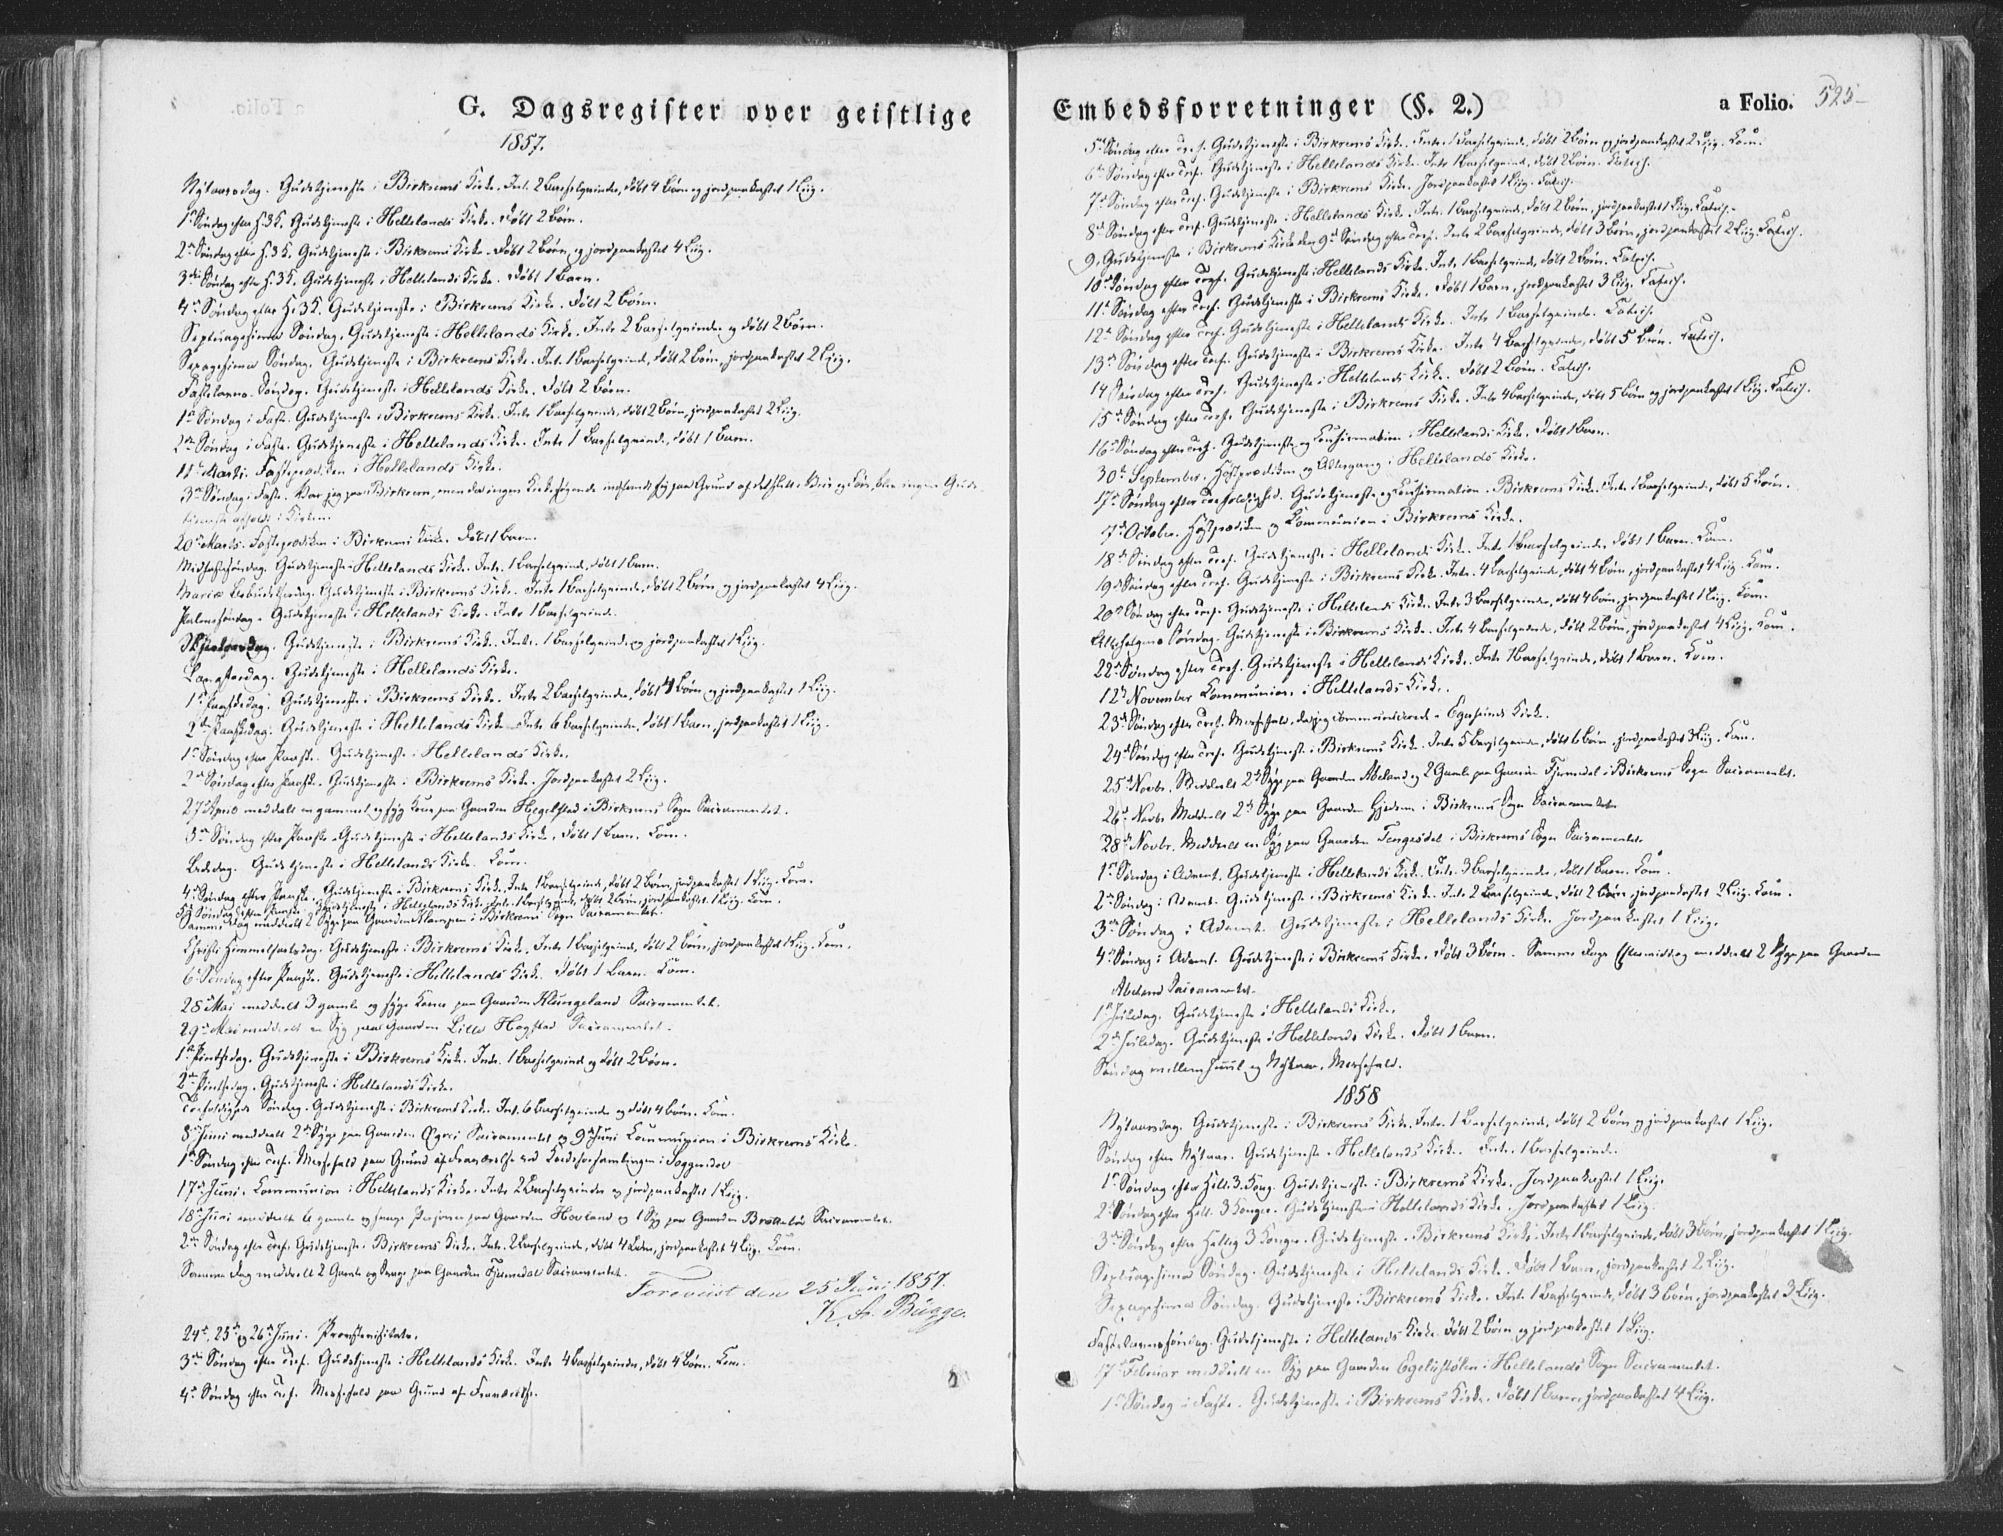 G. Dagsregister over geistlige
1857.
Nytaarsdag. Gudstjeneste i Birkrems Kirke. Int. 2 Barselqvinder, døbt 4 Børn og jordpaakastet 1 Liig.
1ste Søndag efter H. 3 K. Gudstjeneste i Hellelands Kirke. Døbt 2 Børn.
2den Søndag efter H. 3 K. Gudstjeneste i Birkrems Kirke. Døbt 2 Børn og jordpaakastet 4 Liig.
3die Søndag efter H. 3 K. Gudstjeneste i Hellelands Kirke. Døbt 1 Barn.
4de Søndag efter H. 3 K. Gudstjeneste i Birkrems Kirke. Døbt 2 Børn.
Septuagesima Søndag. Gudstjeneste i Hellelands Kirke. Intr. 2 Barselqvinder og døbt 2 Børn.
Sexagesima Søndag. Gudstjeneste i Birkrems Kirke. Int. 1 Barselqvind, døbt 2 Børn, jordpaakastet 2 Liig.
Fastelavns Søndag. Gudstjeneste i Hellelands Kirke. Døbt 2 Børn.
1ste Søndag i Faste. Gudstjeneste i Birkrems Kirke. Intr. 1 Barselqvinde, døbt 2 Børn, jordpaakastet 2 Liig.
2den Søndag i Faste. Gudstjeneste i Hellelands Kirke. Intr. 1 Barselqvind, døbt 1 Barn.
11te Marts. Fasteprædiken i Hellelands Kirke.
3die Søndag i Faste. Var jeg paa Birkrem, men da ingen Kirkesøgende indfandt sig paa Grund af det slette Veir og Føre, blev ingen Guds-
tjeneste afholdt i Kirken.
20de Marts. Fasteprædiken i Birkrems Kirke. Døbt 1 Barn.
Midfastesøndag. Gudstjeneste i Hellelands Kirke. Intr. 1 Barselqvind, døbt 1 Barn.
Mariæ Bebudelsesdag. Gudstjeneste i Birkrems Kirke. Intr. 1 Barselqvinde, døbt 2 Børn og jordpaakastet 4 Liig.
Palmesøndag. Gudstjeneste i Hellelands Kirke. Intr. 1 Barselqvind.
Skjærtorsdag. Gudstjeneste i Birkrems Kirke. Intr. 1 Barselqvinde og jordpaakastet 1 Liig.
Langfredag. Gudstjeneste i Hellelands Kirke.
1ste Paaskedag. Gudstjeneste i Birkrems Kirke. Intr. 2 Barselqvinder, døbt 4 Børn og jordpaakastet 1 Liig.
2den Paaskedag. Gudstjeneste i Hellelands Kirke. Intr. 6 Barselqvinder, døbt 1 Barn, jordpaakastet 1 Liig.
1ste Søndag efter Paaske. Gudstjeneste i Hellelands Kirke.
2den Søndag efter Paaske. Gudstjeneste i Birkrems Kirke. Jordpaakastet 2 Liig.
27de April meddelt en gammel og syg Kone paa Gaarden Hegelstad i Birkrems Sogn Sacramentet.
3die Søndag efter Paaske. Gudstjeneste i Hellelands Kirke. Døbt 1 Barn. Kom.
Bededag. Gudstjeneste i Hellelands Kirke. Kom.
4de Søndag efter Paaske. Gudstjeneste i Birkrems Kirke. Intr. 1 Barselqvind, døbt 2 Børn, jordpaakastet 1 Liig. Kom.
5te Søndag efter Paaske. Gudstjeneste i Hellelands Kirke. Intr. 1 Barselqvind, døbt 2 Børn, jordpaakastet 1 Liig. Kom.
Samme Dag meddeelt 2 Syge paa Gaarden i Birkrems Sogn Sacramentet.
Christi Himmelfartsdag. Gudstjeneste i Birkrems Kirke. Intr. 1 Barselqvind, døbt 2 Børn, jordpaakastet 1 Liig. Kom.
6te Søndag efter Paaske. Gudstjeneste i Hellelands Kirke. Døbt 1 Barn. Kom.
28de Mai meddelt 3 gamle og syge Koner paa Gaarden Klungeland Sacramentet.
29de Mai meddelt en Syg paa Gaarden Lille Hegstad Sacramentet.
1ste Pintsedag. Gudstjeneste i Birkrems Kirke. Intr. 1 Barselqvind og døbt 2 Børn.
2den Pintsedag. Gudstjeneste i Hellelands Kirke.
Trefoldigheds Søndag. Gudstjeneste i Birkrems Kirke. Int. 6 Barselqvinder og døbt 4 Børn. Kom.
8de Juni meddelt 2de Syge paa Gaarden Sacramentet og 9de Juni Communion i Birkrems Kirke.
1ste Søndag efter Tref. Messefald paa Grund af Fraværelse ved Kredsforsamlingen i Soggendal
17de Juni. Communion i Hellelands Kirke. Intr. 2 Barselqvinder og jordpaakastet 1 Liig.
18de Juni meddelt 6 gamle og svage Personer paa Gaarden Hovland og 1 Syg paa Gaarden Sacramentet.
2den Søndag efter Tref. Gudstjeneste i Birkrems Kirke. Intr. 2 Barselqvinde, døbt 4 Børn, jordpaakastet 4 Liig. Kom.
Samme Dag meddelt 2 Gamle og Svage paa Gaarden Fjermedal Sacramentet.
Foreviist den 25 Juni 1857.
K. Fr. Bugge.
24de, 25de og 26de Juni. Provstevisitats.
3die Søndag efter Tref. Gudstjeneste i Hellelands Kirke. Intr. 4 Barselqvinder, døbt 4 Børn. Kom.
4de Søndag efter Tref. Messefald paa Grund af Fraværelse.
Embedsforretninger (§. 2.) a Folio. 525
5te Søndag efter Tref. Gudstjeneste i Birkrems Kirke. Intr. 1 Barselqvinde, døbt 2 Børn og jordpaakastet 2 Liig. Kom.
6te Søndag efter Tref. Gudstjeneste i Hellelands Kirke. Intr. 1 Barselqvind, døbt 2 Børn. Catech.
7de Søndag efter Tref. Gudstjeneste i Birkrems Kirke. Jordpaakastet 1 Liig. Catech.
8de Søndag efter Tref. Gudstjeneste i Hellelands Kirke. Intr. 1 Barselqvinde, døbt 2 Børn, jordpaakastet 1 Liig. Catech.
9, Gudstjeneste i Birkrems Kirke den 9de Søndag efter Tref. Intr. 2 Barselqvinder, døbt 3 Børn, jordpaakastet 2 Liig. Catech.
10de Søndag efter Tref. Gudstjeneste i Hellelands Kirke. Intr. 1 Barselqvinde, døbt 2 Børn. Catech.
11te Søndag efter Tref. Gudstjeneste i Birkrems Kirke. Døbt 1 Barn, jordpaakastet 3 Liig. Catech.
12te Søndag efter Tref. Gudstjeneste i Hellelands Kirke. Intr. 1 Barselqvinde. Catech.
13de Søndag efter Tref. Gudstjeneste i Birkrems Kirke. Intr. 4 Barselqvinder, døbt 5 Børn. Catech.
14 Søndag efter Tref. Gudstjeneste i Hellelands Kirke. Døbt 2 Børn. Catech.
15de Søndag efter Tref. Gudstjeneste i Birkrems Kirke. Intr. 4 Barselqvinder, døbt 5 Børn og jordpaakastet 1 Liig. Catech.
16de Søndag efter Tref. Gudstjeneste og Confirmation i Hellelands Kirke. Døbt 1 Barn.
30te September. Høstprædiken og Altergang i Hellelands Kirke.
17de Søndag efter Trefoldighed. Gudstjeneste og Confirmation i Birkrems Kirke. Intr. 1 Barselqvind, døbt 5 Børn.
7de October. Høstprædiken og Communion i Birkrems Kirke.
18de Søndag efter Tref. Gudstjeneste i Hellelands Kirke. Intr. 1 Barselqvinde, døbt 1 Barn. Kom.
19de Søndag efter Tref. Gudstjeneste i Birkrems Kirke. Intr. 4 Barselqvinder, døbt 4 Børn, jordpaakastet 4 Liig. Kom.
20de Søndag efter Tref. Gudstjeneste i Hellelands Kirke. Intr. 3 Barselqvinder, døbt 4 Børn, jordpaakastet 1 Liig. Kom.
Allehelgens Søndag. Gudstjeneste i Birkrems Kirke. Intr. 4 Barselqvinder, døbt 2 Børn, jordpaakastet 4 Liig. Kom.
22de Søndag efter Tref. Gudstjeneste i Hellelands Kirke. Intr. 1 Barselqvinde, døbt 1 Barn. Kom.
12te November Communion i Hellelands Kirke.
23de Søndag efter Tref. Messefald, da jeg communicerede i Egersunds Kirke.
24de Søndag efter Tref. Gudstjeneste i Birkrems Kirke. Intr. 5 Barselqvinder, døbt 6 Børn, jordpaakastet 3 Liig. Kom.
25de Novbr. Meddeelt 2de Syge paa Gaarden Abeland og 2 Gamle paa Gaarden Fjermedal i Birkrems Sogn Sacramentet.
26de Novbr. Meddeelt 2de Syge paa Gaarden Gjedrem i Birkrems Sogn Sacramentet.
28de Novbr. Meddeelt en Syg paa Gaarden Tengesdal i Birkrems Sogn Sacramentet.
1ste Søndag i Advent. Gudstjeneste i Hellelands Kirke. Intr. 3 Barselqvinder, døbt 1 Barn. Kom.
2den Søndag i Advent. Gudstjeneste i Birkrems Kirke. Intr. 2 Barselqvinder, døbt 2 Børn, jordpaakastet 2 Liig. Kom.
3die Søndag i Advent. Gudstjeneste i Hellelands Kirke. Jordpaakastet 1 Liig.
4de Søndag i Advent. Gudstjeneste i Birkrems Kirke. Døbt 3 Børn. Samme Dags Eftermiddag meddeelt 2 Syge paa Gaarden
Abeland Sacramentet.
1ste Juledag. Gudstjeneste i Hellelands Kirke.
2den Juledag. Gudstjeneste i Hellelands Kirke. Døbt 1 Barn.
Søndag mellem Juul og Nytaar. Messefald.
1858
Nytaarsdag. Gudstjeneste i Birkrems Kirke. Intr. 1 Barselqvinde, døbt 2 Børn og jordpaakastet 1 Liig.
Søndag efter Nytaar. Gudstjeneste i Hellelands Kirke. Intr. 1 Barselqvind.
1ste Søndag efter Hell. 3 Kong. Gudstjeneste i Birkrems Kirke. Jordpaakastet 1 Liig.
2den Søndag efter Hell. 3 Konger. Gudstjeneste i Hellelands Kirke. Jordpaakastet 1 Liig.
3die Søndag efter Hellig 3 Konger. Gudstjeneste i Birkrems Kirke. Intr. 1 Barselqvinde, døbt 3 Børn, jordpaakastet 1 Liig.
Septuagesima Søndag. Gudstjeneste i Hellelands Kirke. Døbt 1 Barn, jordpaakastet 2 Liig.
Sexagesima Søndag. Gudstjeneste i Birkrems Kirke. Intr. 1 Barselqvinde, døbt 3 Børn, jordpaakastet 3 Liig.
Fastelavnssøndag. Gudstjeneste i Hellelands Kirke. Døbt 2 Børn og jordpaakastet 1 Liig.
17de Februar meddeelt en Syg paa Gaarden Egelistølen i Hellelands Sogn Sacramentet.
1ste Søndag i Faste. Gudstjeneste i Birkrems Kirke. Døbt 1 Barn, jordpaakastet 4 Liig.